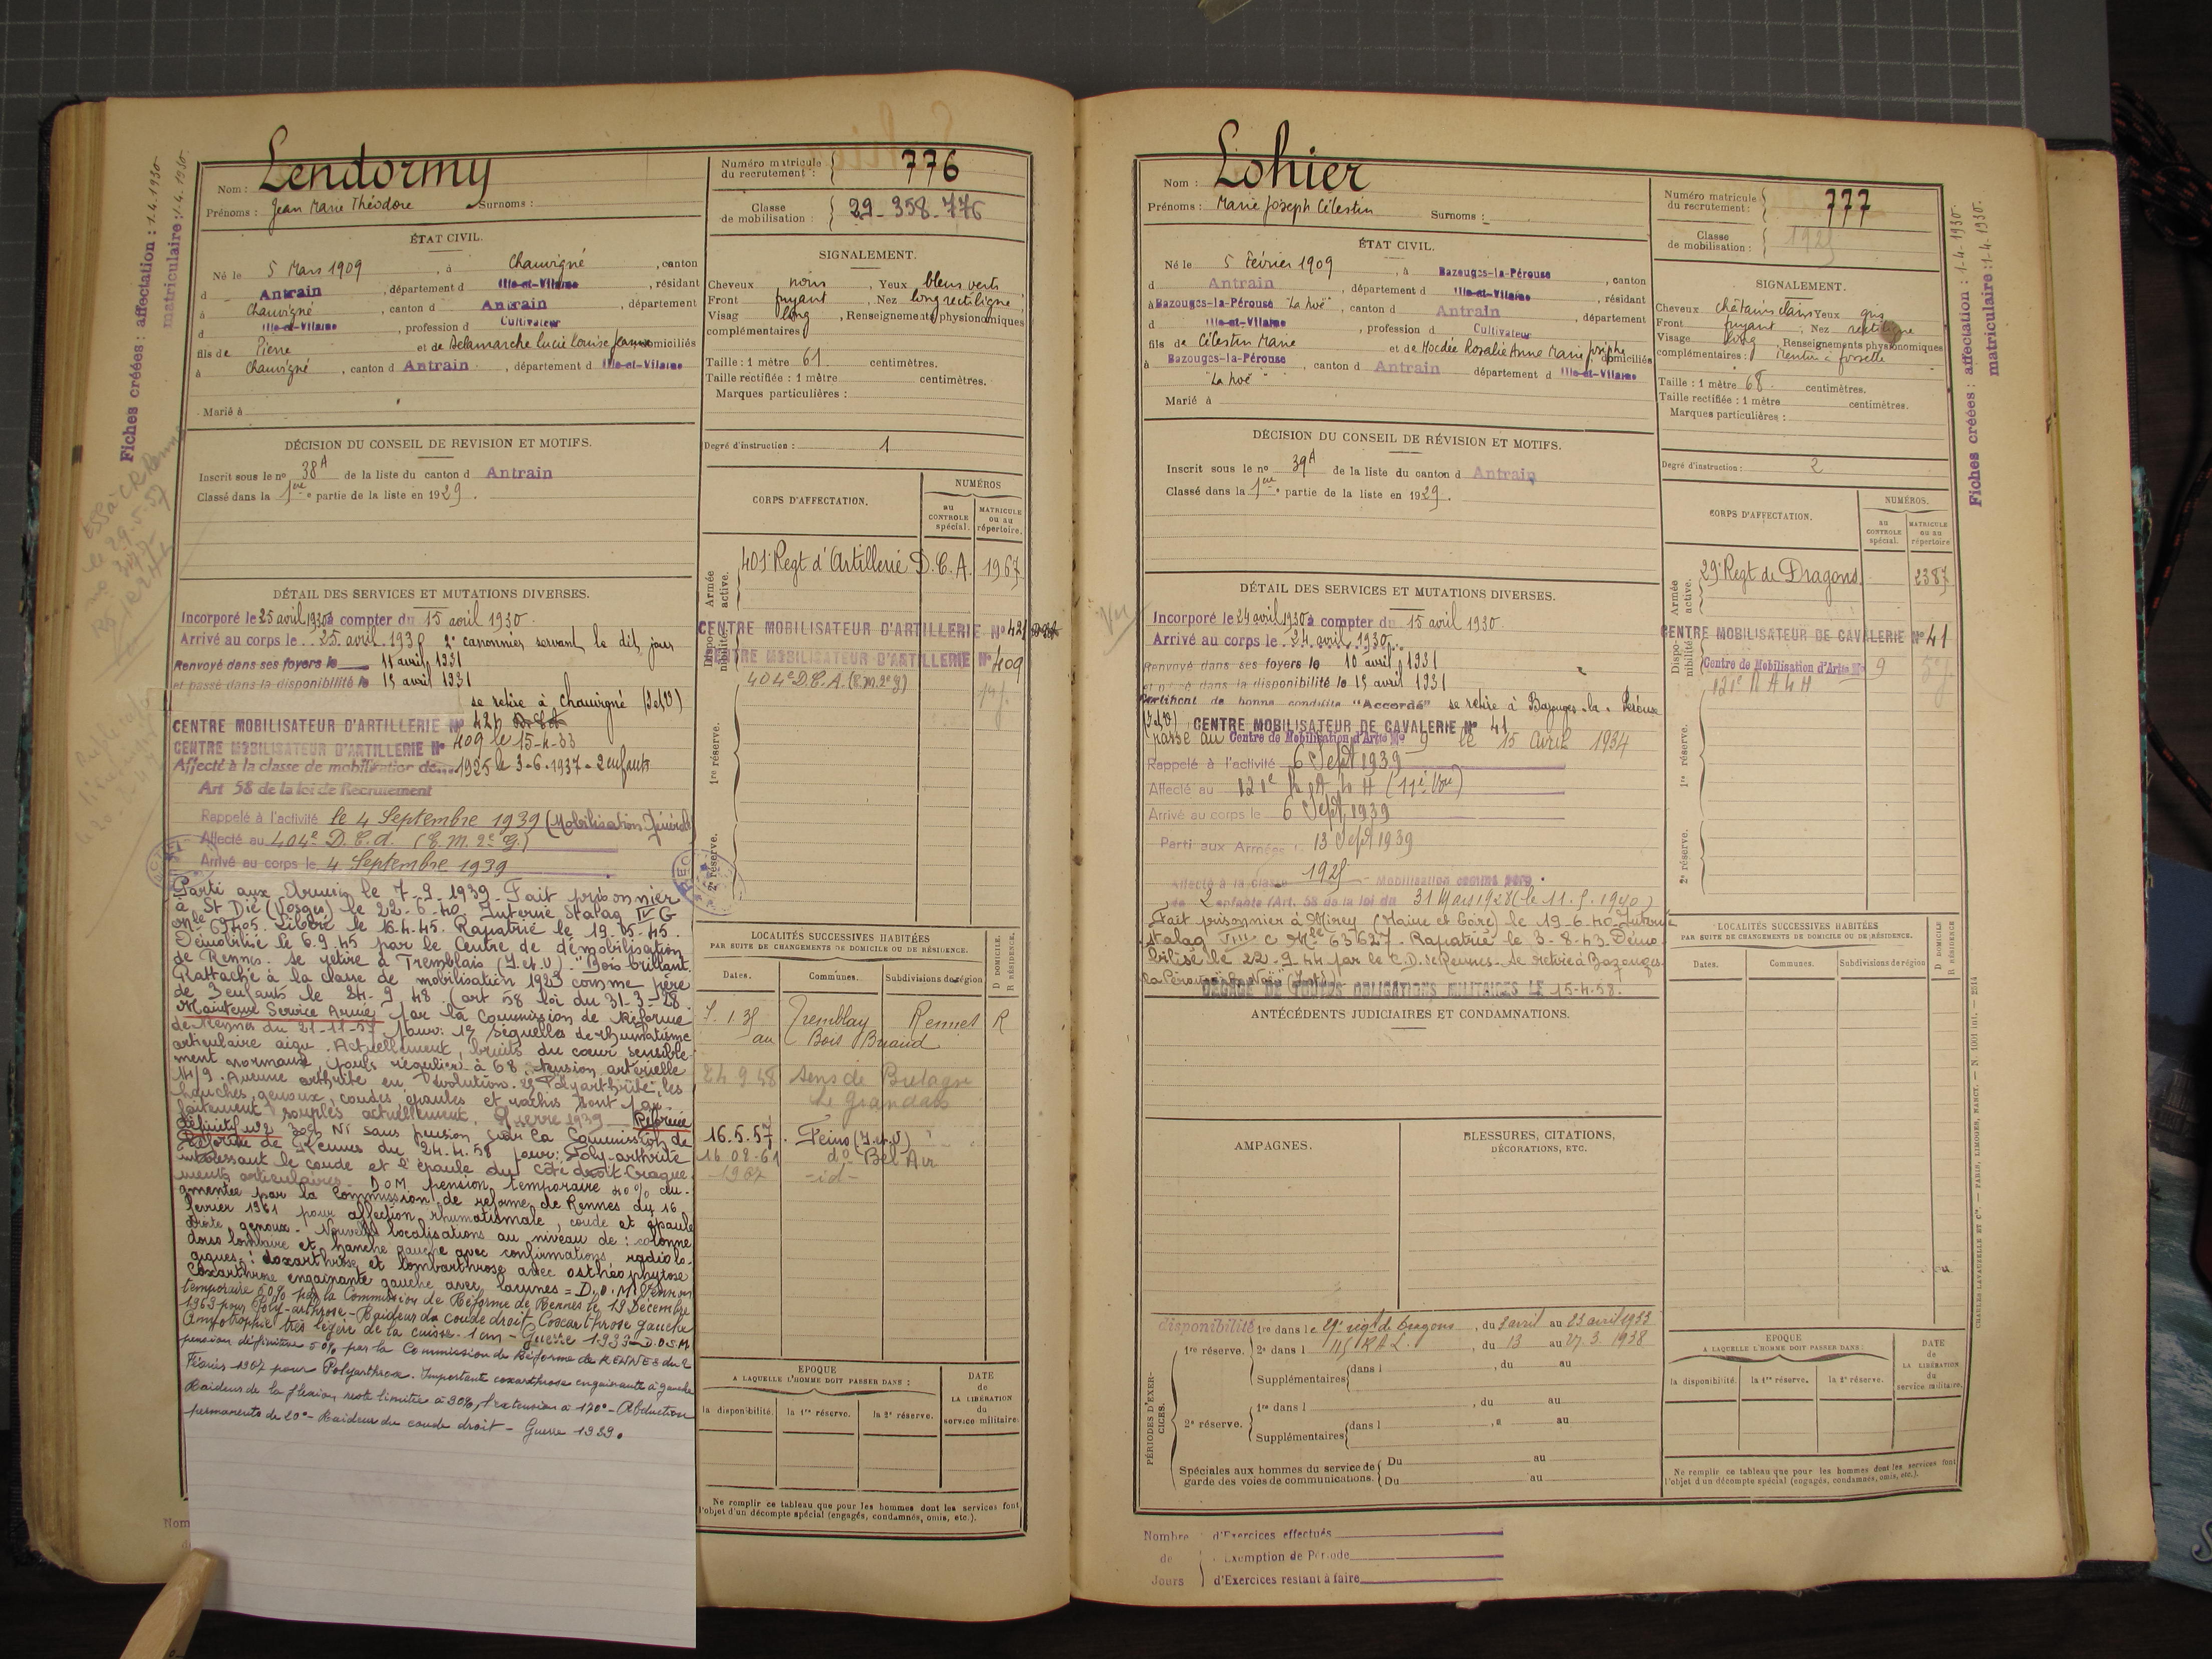 Fiches créées : affectation : 1.4.1930
matriculaire : 1.4.1930.
Nom : Lendormy
Prénoms : Jean Marie Théodore Surnoms :
Numéro matricule du recrutement : 776
Classe de mobilisation : 29-358-776
ÉTAT CIVIL.
Né le 5 Mars 1909, à Chauvigné, canton
d Antrain, département d Ille-et-Vilaine, résidant
à Chauvigné, canton d Antrain, département
d Ille-et-Vilaine, profession d Cultivateur
fils de Pierre et de Delamarche Lucie Louise Jeanne domiciliés
à Chauvigné, canton d Antrain, département d Ille-et-Vilaine
Marié à
SIGNALEMENT.
Cheveux noirs, Yeux bleus verts
Front fuyant, Nez long rectiligne
Visag long, Renseignements physionomiques
complémentaires
Taille : 1 mètre 61 centimètres.
Taille rectifiée : 1 mètre centimètres.
Marques particulières :
Degré d'instruction : 1
DÉCISION DU CONSEIL DE REVISION ET MOTIFS.
Inscrit sous le nº 38A de la liste du canton d Antrain
Classé dans la 1ere partie de la liste en 1929.
CORPS D'AFFECTATION.
NUMÉROS
au CONTROLE spécial.
MATRICULE ou au répertoire.
Armée active.
401e Regt d'Artillerie D.C.A. 1967
Disponibilité.
CENTRE MOBILISATEUR D'ARTILLERIE Nº 421
CENTRE MOBILISATEUR D'ARTILLERIE Nº 409
404e D.C.A. (E.m. 2e g)
1re réserve.
2e réserve.
DÉTAIL DES SERVICES ET MUTATIONS DIVERSES.
Incorporé le 25 avril 1930 à compter du 15 avril 1930.
Arrivé au corps le 25 avril 1930 2e canonnier servant le dit jour
Renvoyé dans ses foyers le 11 avril 1931
et passé dans la disponibilité le 15 avril 1931
se retire à Chauvigné (I et V)
CENTRE MOBILISATEUR D'ARTILLERIE Nº 421
CENTRE MOBILISATEUR D'ARTILLERIE Nº 409 le 15-4-33
Affecté à la classe de mobilisation de 1925 le 3-6-1937 - 2 enfants
Art 58 de la loi de Recrutement
Rappelé à l'activité le 4 Septembre 1939 (Mobilisation Générale)
Affecté au 404e D.C.A. (E.M. 2e G.)
Arrivé au corps le 4 Septembre 1939
Parti aux Armées le 7-9-1939. Fait prisonnier
à St Dié (Vosges) le 22-6-40. Interné Stalag IV G
Mle 65405. Libéré le 16-4-45. Rapatrié le 19-5-45.
Démobilisé le 6-9-45 par le Centre de démobilisation
de Rennes. se retire à Tremblais (I. et V) "Bois brillant
Rattaché à la classe de mobilisation 1923 comme père
de 3 enfants le 24-9-48 (art 58 loi du 31-3-28
Maintenu Service Armé par la Commission de Réforme
de Rennes du 21-11-57 pour : 1º Séquelles de rhumatisme
articulaire aigu. Actuellement, bruits du coeur sensible-
ment normaux, pouls régulier à 68, tension artérielle
14/9. Aucune arthrite en évolution. 2º Polyarthrite, les
hanches, genoux, coudes, épaules et rachis sont par-
faitement souples actuellement. Guerre 1939 Réformé
définitif nº2 30% NI sans pension par la Commission de
Réforme de Rennes du 24.4.58 pour : Poly-arthrite
intéressant le coude et l'épaule du côté droit. Craque-
ments articulaires. D.O.M. pension temporaire 40% au-
gmentée par la Commission de réforme de Rennes du 16
février 1961 pour affection rhumatismale, coude et épaule
droite, genoux. Nouvelles localisations au niveau de : colonne
dorso lombaire et hanche gauche avec confirmations radiolo-
giques : doxarthrose et lombarthrose avec osthéophytose
Coxarthrose engainante gauche avec lacunes = D.O.M. Pension
temporaire 50% par la Commission de Réforme de Rennes le 19 Décembre
1963 pour Poly-arthrose - Raideur du coude droit - Coxarthrose gauche
Amyotrophie très légère de la cuisse - 1 cm - Guerre 1939 - D.O.S.M.
pension définitive 50% par la Commission de Réforme de RENNES du 2
Février 1967 pour Polyarthrose. Importante coxarthrose engainante à gauche
Raideur de la flexion reste limitée à 90º, l'extension à 170º - Abduction
permanente de 20º - Raideur du coude droit - Guerre 1939.
LOCALITÉS SUCCESSIVES HABITÉES
PAR SUITE DE CHANGEMENTS DE DOMICILE OU DE RÉSIDENCE.
D DOMICILE. R RÉSIDENCE.
Dates. Communes. Subdivisions de région
Tremblay Rennes R
au Bois Buaud
24 9 48 Sens de Bretagne
16.5.57. Feins (I. et V)
16.02.61 dº Bel Air
1967 -id-
EPOQUE
A LAQUELLE L'HOMME DOIT PASSER DANS :
DATE de LA LIBÉRATION du service militaire.
la disponibilité. la 1re réserve. la 2e réserve.
Ne remplir ce tableau que pour les hommes dont les services font
l'objet d'un décompte spécial (engagés, condamnés, omis, etc.).
Nom : Lohier
Prénoms : Marie Joseph Célestin Surnoms :
Numéro matricule du recrutement : 777
Classe de mobilisation :
Fiches créées : affectation : 1-4-1930.
matriculaire : 1-4-1930.
ÉTAT CIVIL.
Né le 5 Février 1909, à Bazouges-la-Pérouse, canton
d Antrain, département d Ille-et-Vilaine, résidant
à Bazouges-la-Pérouse "La hoë", canton d Antrain, département
d Ille-et-Vilaine, profession d Cultivateur
fils de Célestin Marie et de Hocdée Rosalie Anne Marie Josèphe domiciliés
à Bazouges-la-Pérouse, canton d Antrain département d Ille-et-Vilaine
"La hoë"
Marié à
SIGNALEMENT.
Cheveux châtains clairs Yeux gris
Front fuyant, Nez rectiligne
Visage long, Renseignements physionomiques
complémentaires : Menton à fossette
Taille : 1 mètre 68 centimètres.
Taille rectifiée : 1 mètre centimètres.
Marques particulières :
Degré d'instruction : 2
DÉCISION DU CONSEIL DE RÉVISION ET MOTIFS.
Inscrit sous le nº 39A de la liste du canton d Antrain
Classé dans la 1ere partie de la liste en 1929.
CORPS D'AFFECTATION.
NUMÉROS.
au CONTROLE spécial.
MATRICULE ou au répertoire
Armée active.
29e Regt de Dragons 2387
Disponibilité.
CENTRE MOBILISATEUR DE CAVALERIE Nº 41
Centre de Mobilisation d'Artie Nº 9
121e R A L H
1re réserve.
2e réserve.
DÉTAIL DES SERVICES ET MUTATIONS DIVERSES.
Incorporé le 24 avril 1930 à compter du 15 avril 1930
Arrivé au corps le 24 avril 1930
Renvoyé dans ses foyers le 10 avril 1931
et passé dans la disponibilité le 15 avril 1931
Certificat de bonne conduite "Accordé" se retire à Bazouges-la-Pérouse
(I et V) CENTRE MOBILISATEUR DE CAVALERIE Nº 41
passé au Centre de Mobilisation d'Artie Nº 9 le 15 Avril 1934
Rappelé à l'activité 6 Sept 1939
Affecté au 121e R A L H (11e Bie)
Arrivé au corps le 6 Sept 1939
Parti aux Armées 13 Sept 1939
Affecté à la classe 1925 Mobilisation comme père
de 2 enfants (Art. 58 de la loi du 31 Mars 1928 (le 11.5.1940)
Fait prisonnier à Mirey (Haine et Loire) le 19-6-40 Interné
Stalag VIII C Mle 63627. Rapatrié le 3-8-43. Démo-
bilisé le 22-9-44 par le C.D. de Rennes. Se retire à Bazouges-
la Pérouse
DÉGAGÉ DE TOUTES OBLIGATIONS MILITAIRES LE 15-4-58.
ANTÉCÉDENTS JUDICIAIRES ET CONDAMNATIONS.
LOCALITÉS SUCCESSIVES HABITÉES
PAR SUITE DE CHANGEMENTS DE DOMICILE OU DE RÉSIDENCE.
D DOMICILE R RÉSIDENCE
Dates. Communes. Subdivisions de région
AMPAGNES.
BLESSURES, CITATIONS, DÉCORATIONS, ETC.
PÉRIODES D'EXERCICES.
disponibilité 1re dans le 29e régt de Dragons, du 3 avril au 23 avril 1933
1re réserve. 2e dans l 115 R A L., du 13 au 27.3.1938
Supplémentaires dans l, du au
2e réserve. 1re dans l, du au
Supplémentaires dans l, u au
Spéciales aux hommes du service de garde des voies de communications. Du au
Du au
EPOQUE
A LAQUELLE L'HOMME DOIT PASSER DANS :
DATE de LA LIBÉRATION du service militaire.
la disponibilité. la 1re réserve. la 2e réserve.
Ne remplir ce tableau que pour les hommes dont les services font
l'objet d'un décompte spécial (engagés, condamnés, omis, etc.).
Nombre de Jours
d'Exercices effectués
Exemption de Période
d'Exercices restant à faire
CHARLES-LAVAUZELLE ET Cie — PARIS, LIMOGES, NANCY.